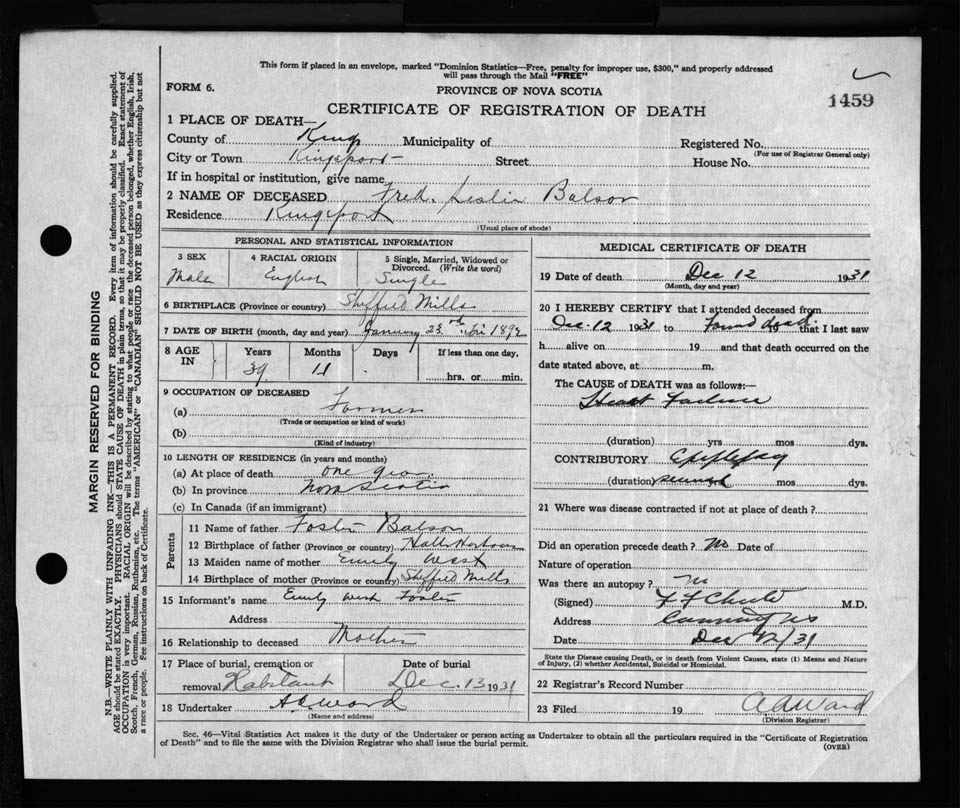 This form if placed in an envelope, marked "Dominion Statistics—Free, penalty for improper use, $300," and properly addressed
will pass through the Mail "FREE"
FORM 6.
PROVINCE OF NOVA SCOTIA
1459
CERTIFICATE OF REGISTRATION OF DEATH
1 PLACE OF DEATH—
County of Kings Municipality of Registered No.
(For use of Registrar General only)
City or Town Kingsport Street House No.
If in hospital or institution, give name in
2 NAME OF DECEASED Fred. Leslie Balson
Residence Kingsport
(Usual place of abode)
MARGIN RESERVED FOR BINDING
N.B.—WRITE PLAINLY WITH UNFADING INK—THIS IS A PERMANENT RECORD. Every item of information should be carefully supplied.
AGE should be stated EXACTLY. PHYSICIANS should STATE CAUSE OF DEATH in plain terms, so that it may be properly classified. Exact statement of
OCCUPATION is very important. RACIAL ORIGIN will be described by stating to what people or race the deceased person belonged, whether English, Irish,
Scotch, French, German, Russian, Ruthenian, etc. The terms "AMERICAN" or "CANADIAN" SHOULD NOT BE USED as they express citizenship but not
a race or people. Fee instructions on back of Certificate.
PERSONAL AND STATISTICAL INFORMATION
3 SEX
Male
4 RACIAL ORIGIN
English
5 Single, Married, Widowed or
Divorced. (Write the word)
Single
6 BIRTHPLACE (Province or country) Sheffield Mills
7 DATE OF BIRTH (month, day and year) January 23rd in 1892
8 AGE IN
Years Months Days If less than one day.
39 11 hrs. or min.
9 OCCUPATION OF DECEASED
(a) Farmer
(Trade or occupation or kind of work)
(b)
(Kind of industry)
10 LENGTH OF RESIDENCE (in years and months)
(a) At place of death one year
(b) In province Nova Scotia
(c) In Canada (if an immigrant)
Parents
11 Name of father Foster Balson
12 Birthplace of father (Province or country) Halls Harbour
13 Maiden name of mother Emily West
14 Birthplace of mother (Province or country) Sheffield Mills
15 Informant's name Emily West Foster
Address
16 Relationship to deceased Mother
17 Place of burial, cremation or
removal Habitant
Date of burial
Dec. 13 1931
18 Undertaker Ward
(Name and address)
MEDICAL CERTIFICATE OF DEATH
19 Date of death Dec 12 1931
(Month, day and year)
20 I HEREBY CERTIFY that I attended deceased from
Dec. 12 1931 to found dead 19 that I last saw
h alive on 19 and that death occurred on the
date stated above, at m.
The CAUSE of DEATH was as follows:—
Heart Failure
(duration) yrs mos dys.
CONTRIBUTORY Epilepsy
(duration) mos dys.
21 Where was disease contracted if not at place of death?
Did an operation precede death? No Date of
Nature of operation
Was there an autopsy? No
(Signed) M.D.
Address Canning NS
Date Dec 12/31
State the Disease causing Death, or in death from Violent Causes, state (1) Means and Nature
of Injury, (2) whether Accidental, Suicidal or Homicidal.
22 Registrar's Record Number
23 Filed 19 A A Ward
(Division Registrar)
Sec. 46—Vital Statistics Act makes it the duty of the Undertaker or person acting as Undertaker to obtain all the particulars required in the "Certificate of Registration
of Death" and to file the same with the Division Registrar who shall issue the burial permit.
(OVER)